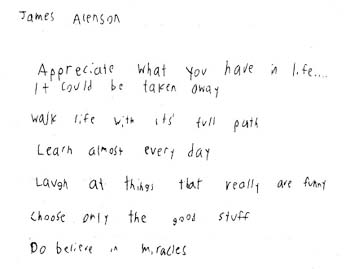 James Arenson
Appreciate what you have in life....
It could be taken away
Walk life with its' full path
Learn almost every day
Laugh at things that really are funny
Choose only the good stuff
Do believe in miracles